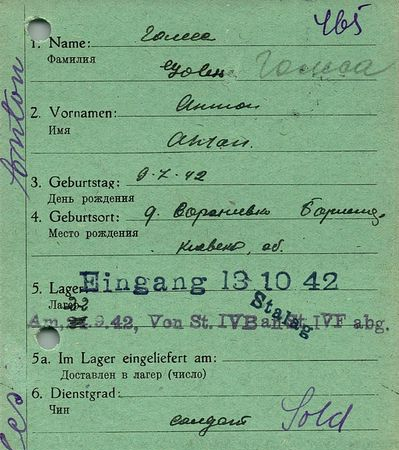 465
1. Name: Голса
Фамилия
Голса
2. Vornamen: Антон
Имя
Антон
Anton
3. Geburtstag: 9.7.42
День рождения
4. Geburtsort: д.
Место рождения
об.
5. Lager Eingang 13 10 42
Лагерь
Stalag
Am, 22.9.42, Von St. IVB an St. IVF abg.
5a. Im Lager eingeliefert am:
Доставлен в лагерь (число)
6. Dienstgrad:
Чин
солдат Sold